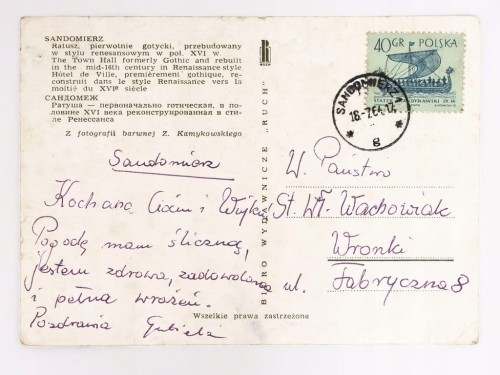 SANDOMIERZ
Ratusz, pierwotnie gotycki, przebudowany
w stylu renesansowym w poł. XVI w.
The Town Hall formerly Gothic and rebuilt
in the mid-16th century in Renaissance style
Hôtel de Ville, premièrement gothique, re-
construit dans le style Renaissance vers la
moitié du XVIe siècle
САНДОМЕЖ
Ратуша — первоначально готическая, в по-
ловине XVI века реконструированная в сти-
ле Ренессанса
Z fotografii barwnej Z. Kamykowskiego
Sandomierz
Kochana Ciociu i Wujku!
Pogodę mam śliczną,
jestem zdrowa, zadowolona
i pełna wrażeń.
Pozdrawia
BIURO WYDAWNICZE „RUCH"
Wszelkie prawa zastrzeżone
40 GR POLSKA
SANDOMIERZ 1
g
W. Państwo
St. Wł. Wachowiak
Wronki
ul. Fabryczna 8